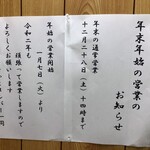 年末年始の営業の
お知らせ
年末の通常営業
十二月二十八日（土）十四時まで
年始の営業開始
一月七日（火）より
令和二年も
頑張って営業しますので
よろしくお願いします